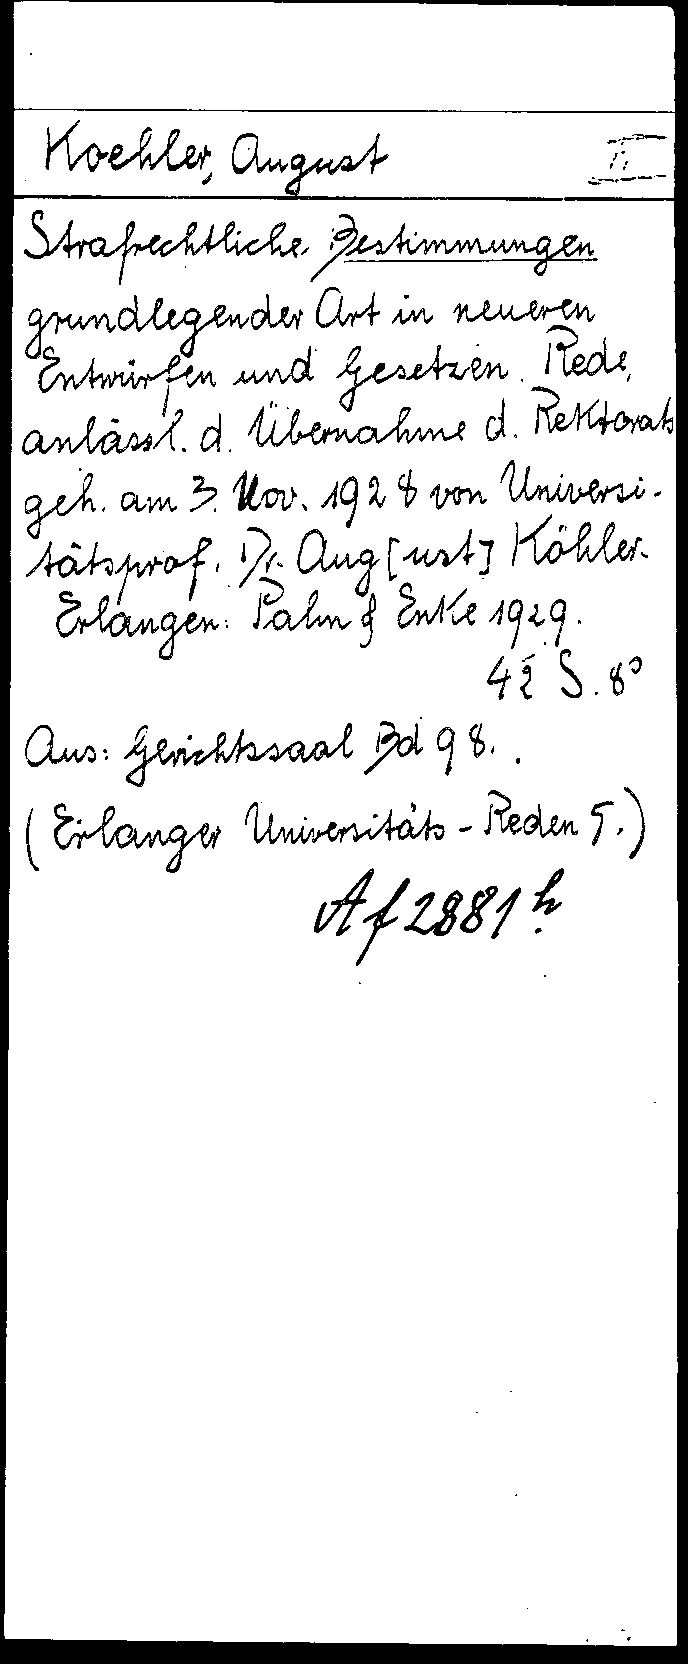 Koehler, August II
Strafrechtliche Bestimmungen
grundlegender Art in neueren
Entwürfen und Gesetzen. Rede,
anlässl. d. Übernahme d. Rektorats
geh. am 3. Nov. 1928 von Universi-
tätsprof. Dr. Aug[ust] Köhler.
Erlangen: Palm & Enke 1929.
42 S. 8°
Aus: Gerichtssaal Bd 98.
(Erlanger Universitäts-Reden 5.)
Af 2881 h